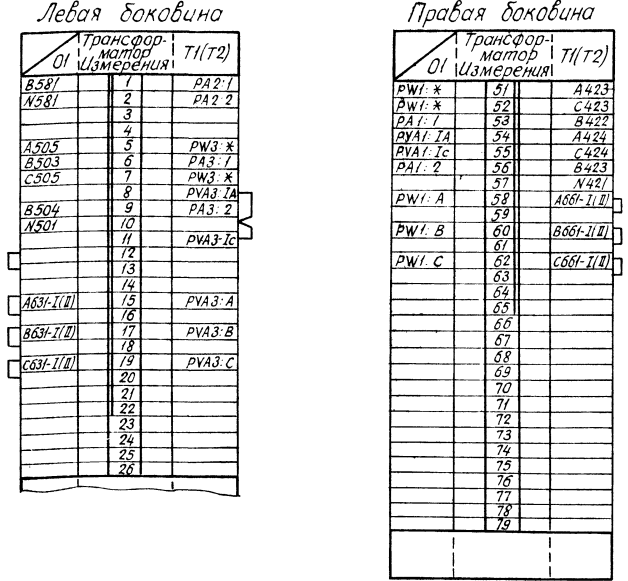 Левая боковина
01 Трансфор-матор Измерения Т1(Т2)
В581 1 РА2:1
N581 2 РА2:2
3
4
А505 5 PW3:*
В503 6 РА3:1
С505 7 PW3:*
8 PVA3:IA
В504 9 РА3:2
N501 10
11 PVA3-Ic
12
13
14
А631-I(II) 15 PVA3:A
16
В631-I(II) 17 PVA3:B
18
С631-I(II) 19 PVA3:C
20
21
22
23
24
25
26
Правая боковина
01 Трансфор-матор Измерения Т1(Т2)
PW1:* 51 А423
PW1:* 52 С423
РА1:1 53 В422
PVA1:IA 54 А424
PVA1:Ic 55 С424
РА1:2 56 В423
57 N421
PW1:A 58 А661-I(II)
59
PW1:B 60 В661-I(II)
61
PW1:C 62 С661-I(II)
63
64
65
66
67
68
69
70
71
72
73
74
75
76
77
78
79